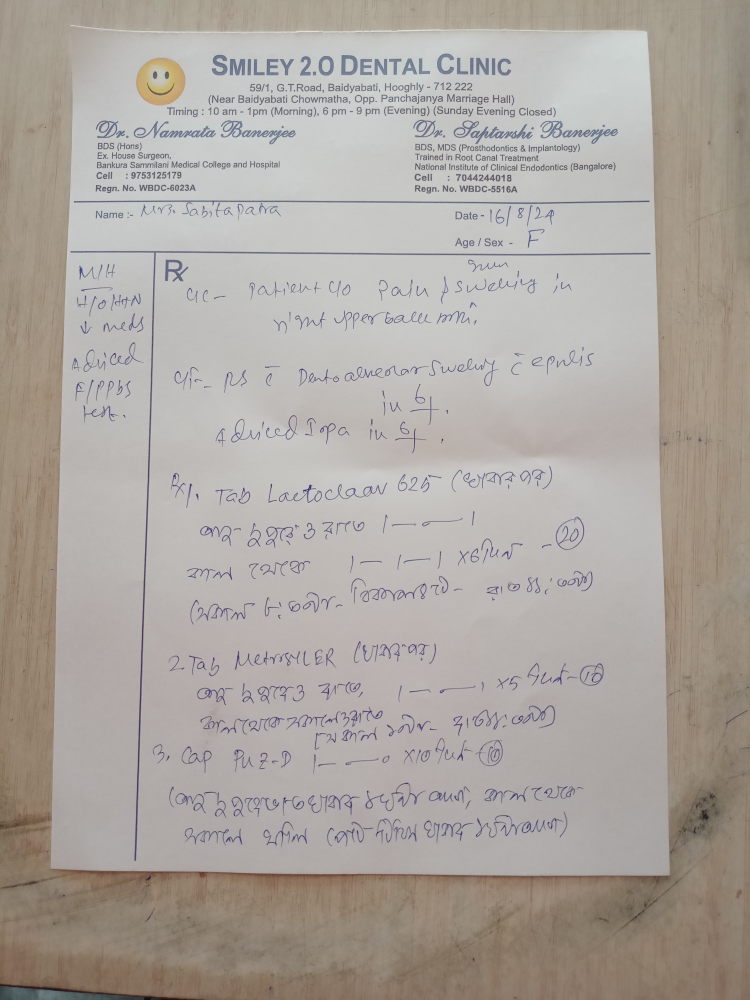 SMILEY 2.O DENTAL CLINIC
59/1, G.T.Road, Baidyabati, Hooghly - 712 222
(Near Baidyabati Chowmatha, Opp. Panchajanya Marriage Hall)
Timing : 10 am - 1pm (Morning), 6 pm - 9 pm (Evening) (Sunday Evening Closed)
Dr. Namrata Banerjee
BDS (Hons)
Ex. House Surgeon,
Bankura Sammilani Medical College and Hospital
Cell : 9753125179
Regn. No. WBDC-6023A
Dr. Saptarshi Banerjee
BDS, MDS (Prosthodontics & Implantology)
Trained in Root Canal Treatment
National Institute of Clinical Endodontics (Bangalore)
Cell : 7044244018
Regn. No. WBDC-5516A
Name :- Mrs. Sabita Patra
Date - 16/8/24
Age / Sex - F
M/H
H/O HTN
↓ meds
Adviced
F/PPBS
test.
Rx
C/C - Patient C/O Pain & gum swelling in
right upper back
O/E - Dentoalveolar swelling c̄ epulis
in 6
Adviced Iopa in 6
Rx/. Tab Lactoclaav 625 (খাবার পর)
আজ দুপুরে ও রাতে 1 — 1
কাল থেকে 1 — 1 — 1 x 6 দিন - 20
(সকাল
2. Tab (খাবার পর)
আজ দুপুরে ও রাতে, 1 — 1 x 5 দিন - 10
কাল থেকে সকালে ও রাতে
3. Cap Puz-D 1 — 0 x 10 দিন - 10
(আজ দুপুরে ভাত খাবার আগে, কাল থেকে
সকালে খালি পেটে খাবার আগে)